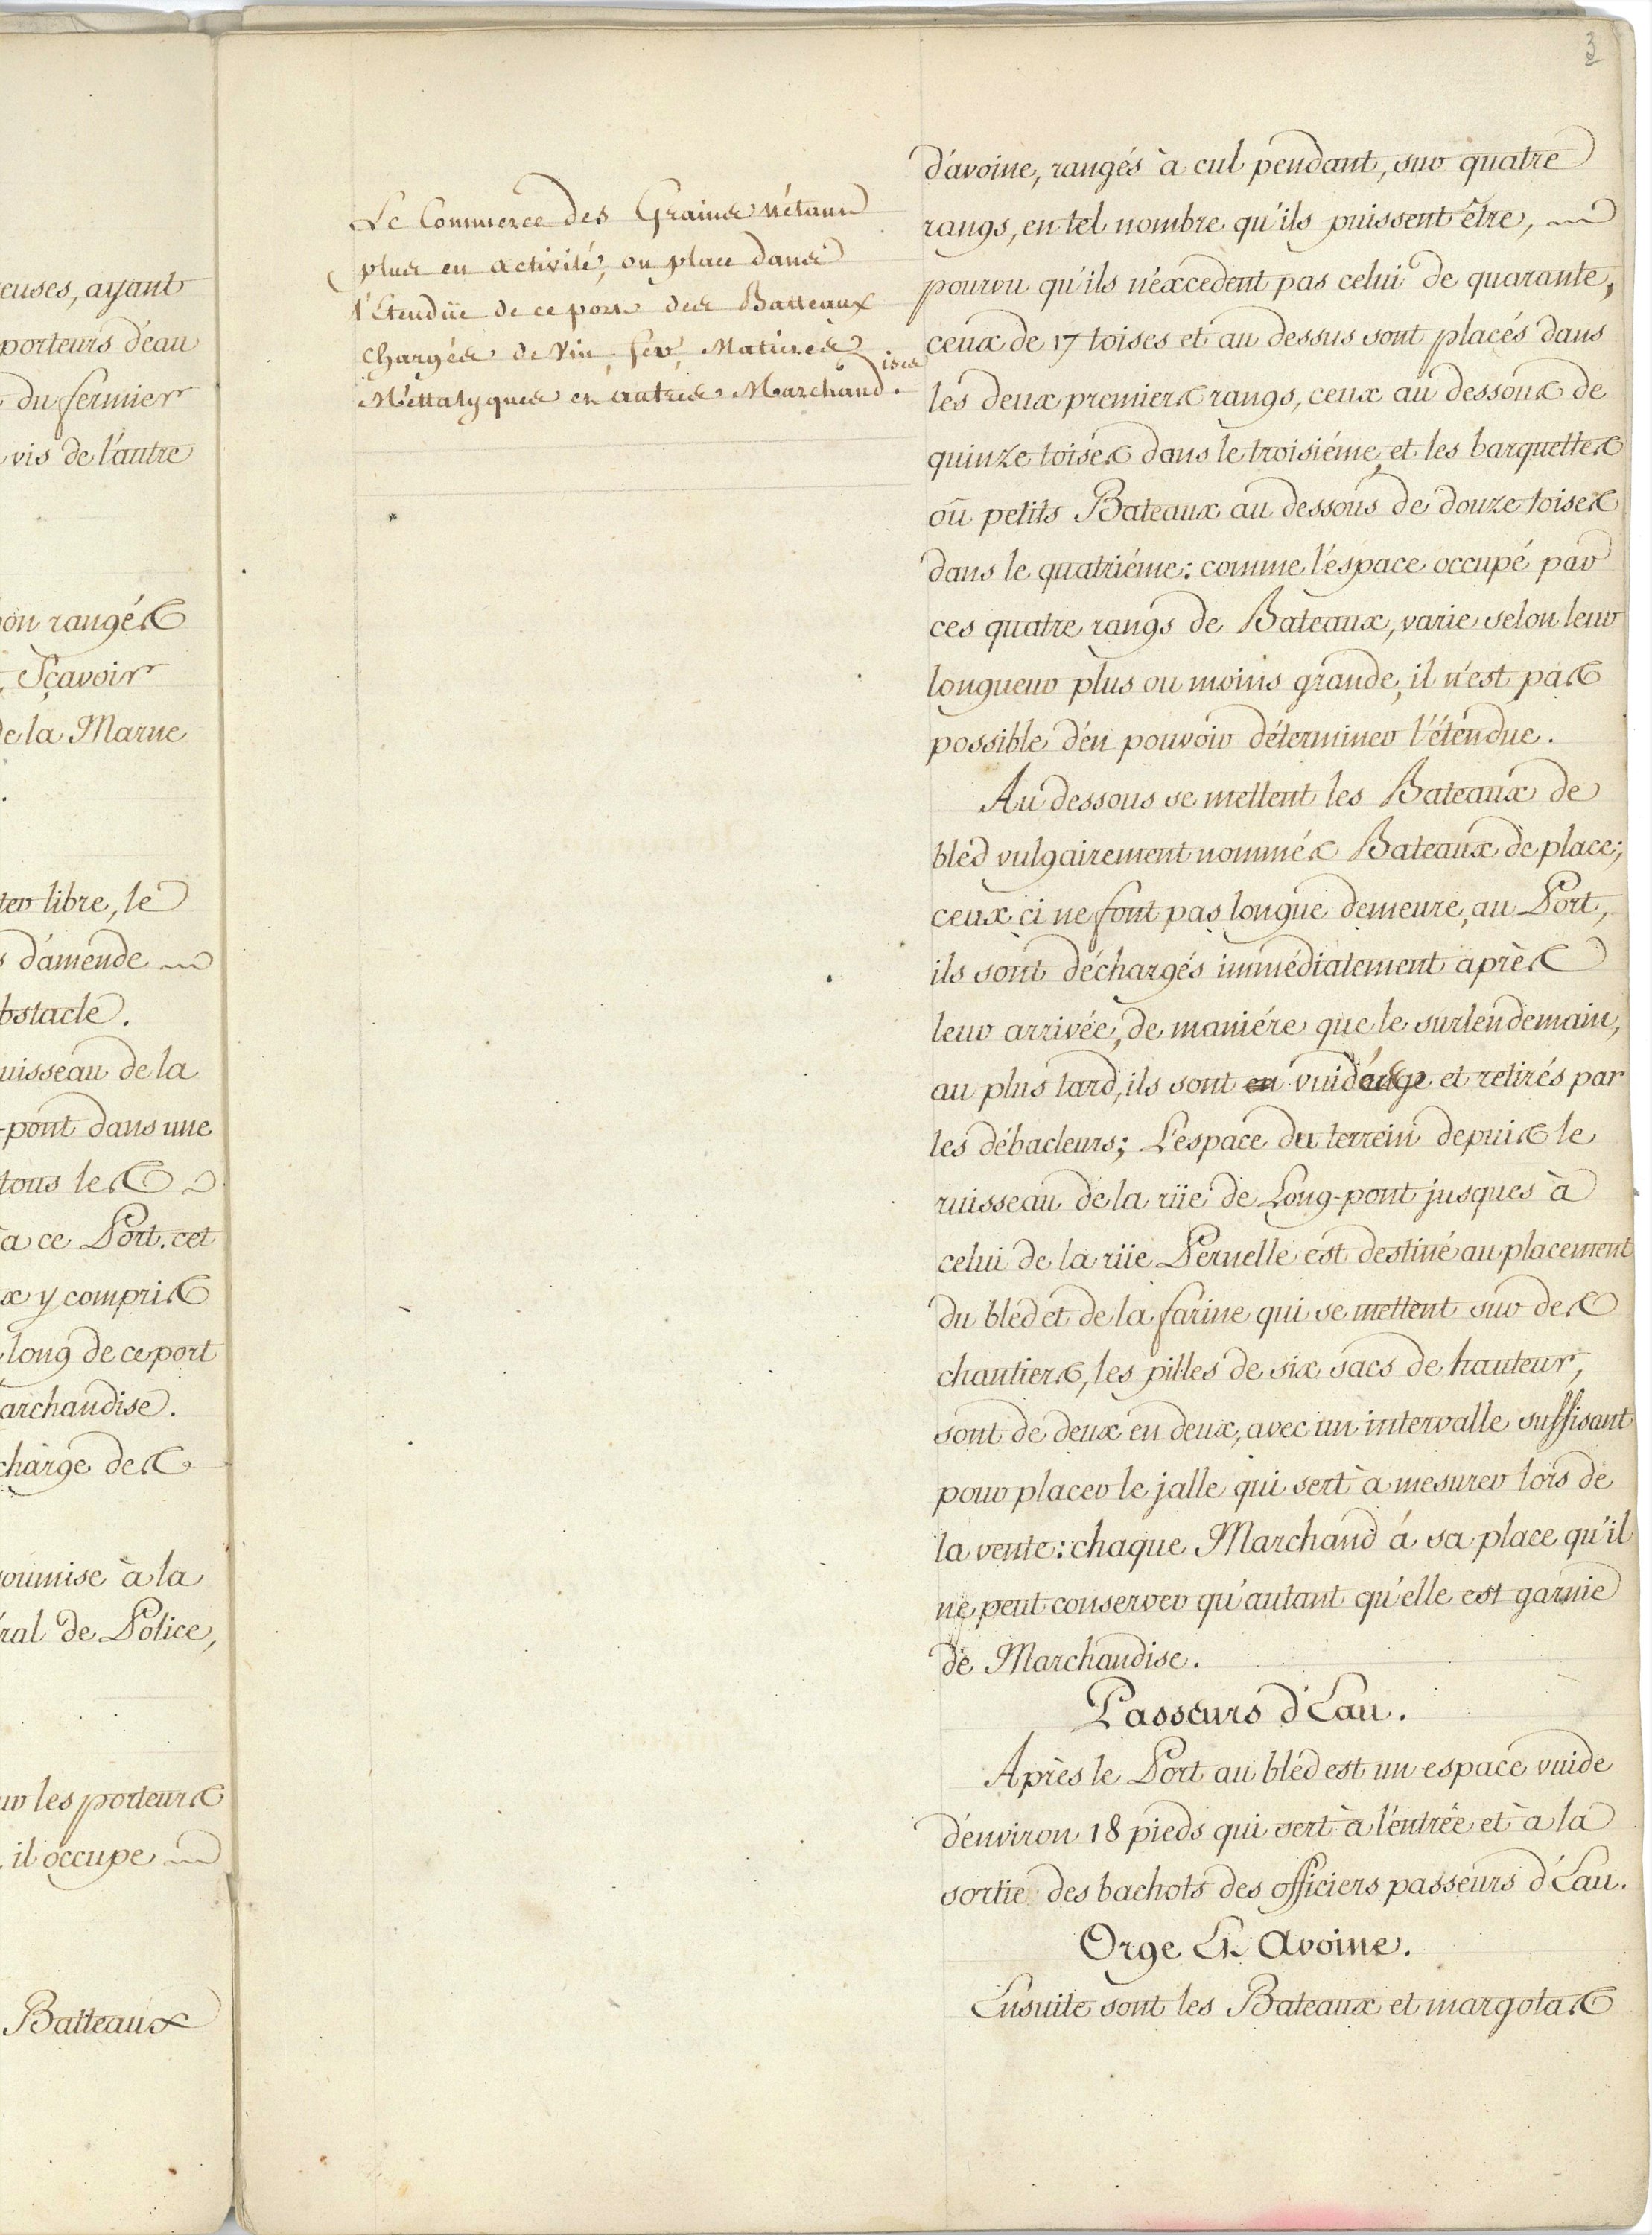 euses, ayant
porteurs d'eau
du fermier
vis de l'autre
on rangés
, Sçavoir
de la Marne
.
ter libre, le
s d'amende
bstacle.
uisseau de la
-pont dans une
tous les
a ce Port. cet
x y compris
long de ce port
archandise.
charge des
oumise à la
ral de Police,
ur les porteurs
il occupe
Batteaux
3
Le Commerce des Grains n'étant
plus en activité, on place dans
l'Etendüe de ce port des Batteaux
chargés de Vin, fer, Matieres
Mettalyques et autres Marchandises.
d'avoine, rangés à cul pendant, sur quatre
rangs, en tel nombre qu'ils puissent être,
pourvu qu'ils n'éxcedent pas celui de quarante,
ceux de 17 toises et au dessus sont placés dans
les deux premiers rangs, ceux au dessous de
quinze toises dans le troisiéme, et les barquettes
où petits Bateaux au dessous de douze toises
dans le quatriéme: comme l'éspace occupé par
ces quatre rangs de Bateaux, varie selon leur
longueur plus ou moins grande, il n'est pas
possible d'én pouvoir déterminer l'étendue.
Au dessous se mettent les Bateaux de
bled vulgairement nommés Bateaux de place;
ceux ci ne font pas longue demeure, au Port,
ils sont déchargés immédiatement après
leur arrivée, de maniére que le surlendemain,
au plus tard, ils sont en vuidange et retirés par
les débacleurs; L'espace du terrein depuis le
ruisseau de la rüe de Long-pont jusques à
celui de la rüe Pernelle est destiné au placement
du bled et de la farine qui se mettent sur des
chantiers, les pilles de six sacs de hauteur,
sont de deux en deux, avec un intervalle suffisant
pour placer le jalle qui sert à mesurer lors de
la vente: chaque Marchand á sa place qu'il
ne peut conserver qu'autant qu'elle est garnie
de Marchandise.
Passeurs d'Eau.
Après le Port au bled est un espace vuide
d'environ 18 pieds qui sert à l'éntrée et à la
sortie des bachots des officiers passeurs d'Eau.
Orge Et Avoine.
Ensuite sont les Bateaux et margotas